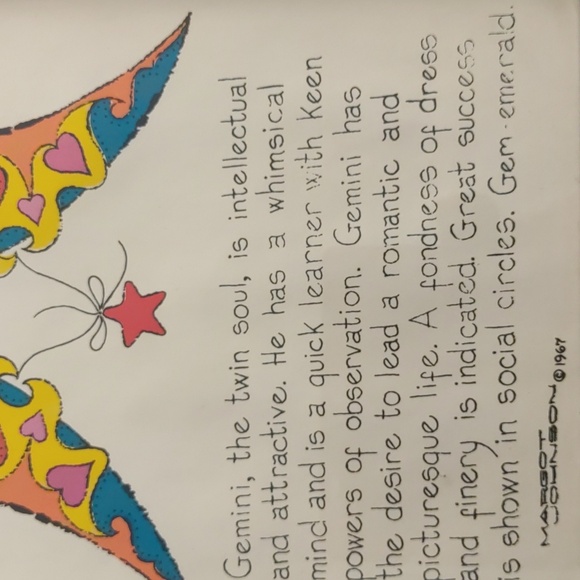 Gemini, the twin soul, is intellectual
and attractive. He has a whimsical
mind and is a quick learner with keen
powers of observation. Gemini has
the desire to lead a romantic and
picturesque life. A fondness of dress
and finery is indicated. Great success
is shown in social circles. Gem-emerald.
MARGOT
JOHNSON © 1967